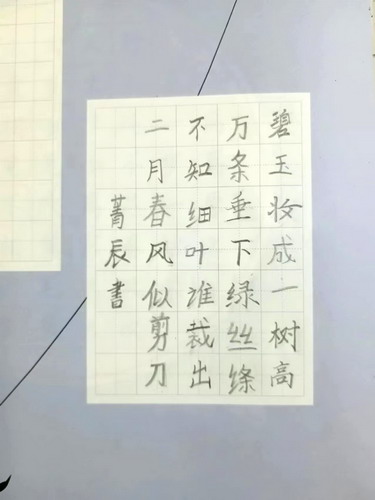 碧玉妆成一树高
万条垂下绿丝绦
不知细叶谁裁出
二月春风似剪刀
菁辰书